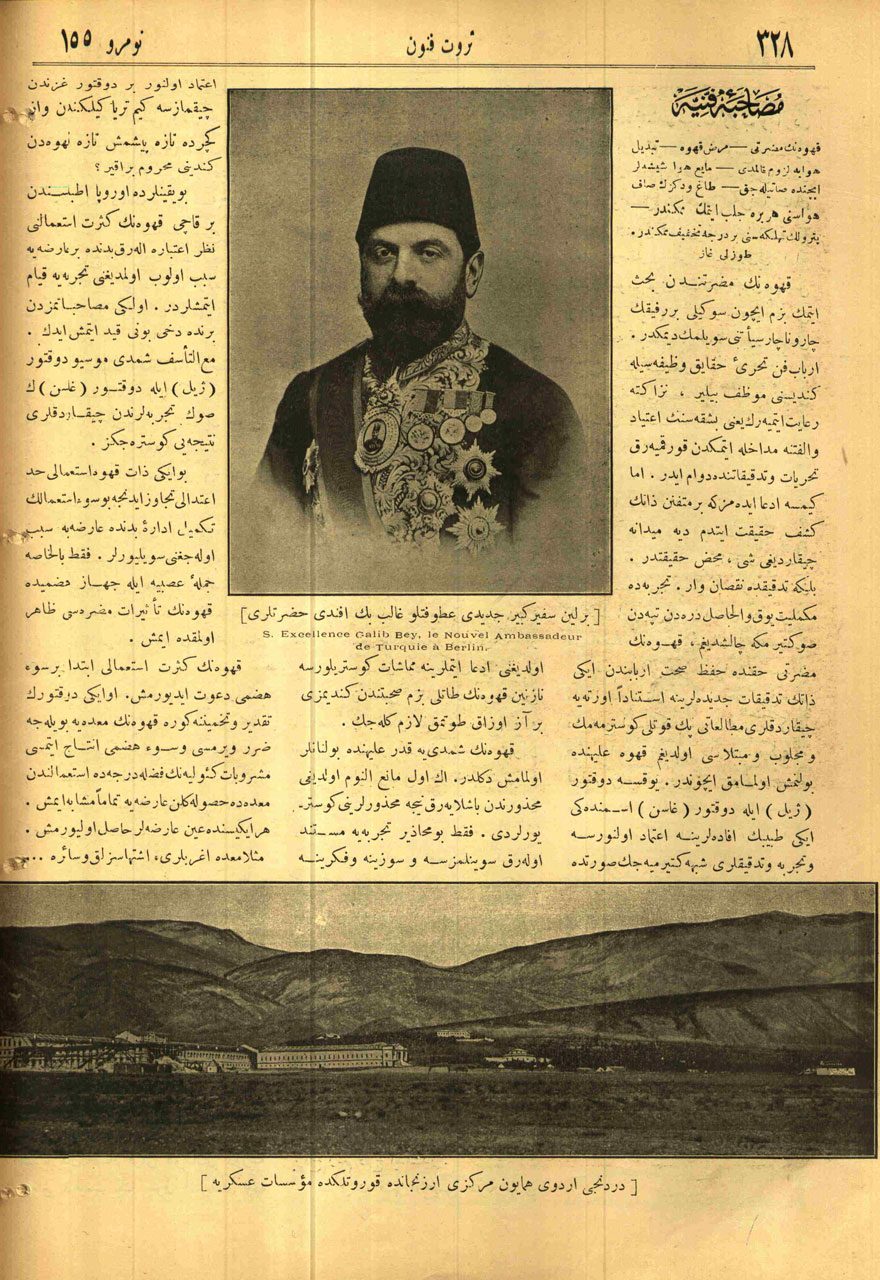 ٣٢٨
ثروت فنون
نومرو ١٥٥
مصاحبهٔ فنیه
قهوه‌نك مضرتی — مرض قهوه — تبدیل
هوایه لزوم قالمدی — مایع هوا شیشه‌لر
ایچنده صاتیله‌جق — طاغ ودكزك صاف
هواسنی هر یره جلب ایتمك ممكندر —
پترولك تهلكه‌سنی بر درجه تخفیف ممكندر.
طوزلی غاز
قهوه‌نك مضرتندن بحث
ایتمك بزم ایچون سوكیلی بر رفیقك
چاروناچار سیأتنی سویلمك دیمكدر.
ارباب فن تحرئ حقایق وظیفه‌سیله
كندیسنی موظف بیلیر، نزاكته
رعایت ایتمیه‌رك یعنی بشقه‌سنك اعتیاد
والفتنه مداخله ایتمكدن قورقمیه‌رق
تحریات وتدقیقاتنده دوام ایدر. اما
كیمسه ادعا ایده‌مز كه بر متفنن ذاتك
كشف حقیقت ایتدم دیه میدانه
چیقاردیغی شی، محض حقیقتدر.
بلكه تدقیقده نقصان وار. تجربه‌ده
مكملیت یوق والحاصل دره‌دن تپه‌دن
صو كتیرمكه چالشدیغم، قهوه‌نك
مضرتی حقنده حفظ صحت اربابندن ایكی
ذاتك تدقیقات جدیده‌لرینه استناداً اورته‌یه
چیقاردقلری مطالعاتی پك قوتلی كوسترمه‌مك
و مجلوب و مبتلاسی اولدیغم قهوه علیهنده
بولنمش اولمامق ایچوندر. یوقسه دوقتور
(ژیل) ایله دوقتور (غاسن) اسمنده‌كی
ایكی طبیبك افاده‌لرینه اعتماد اولنورسه
وتجربه وتدقیقلری شبهه كتیرمیه‌جك صورتده
[ برلین سفیر كبیر جدیدی عطوفتلو غالب بك افندی حضرتلری ]
S. Excellence Galib Bey, le Nouvel Ambassadeur
de Turquie à Berlin.
اولدیغنی ادعا ایتملرینه مماشات كوستریلورسه
نازنین قهوه‌نك طاتلی بزم صحبتندن كندیمزی
بر آز اوزاق طوتمق لازم كله‌جك.
قهوه‌نك شمدی‌یه قدر علیهنده بولنانلر
اولمامش دكلدر. اك اول مانع النوم اولدیغی
محذورندن باشلایه‌رق نیجه محذورلرینی كوستر‌ـ
یورلردی. فقط بو محاذیر تجربه‌یه مستند
اوله‌رق سوینلمزسه و سوزینه وفكرینه
اعتماد اولنور بر دوقتور غزندن
چیقمازسه كیم تریا كیلكندن واز
كچرده تازه پیشمش تازه قهوه‌دن
كندینی محروم براقیر؟
بو یقینلرده اوروپا اطبسندن
بر قاچی قهوه‌نك كثرت استعمالنی
نظر اعتباره اله‌رق بدنده بر عارضه‌یه
سبب اولوب اولمدیغنی تجربه‌یه قیام
ایتمشلردر. اولكی مصاحباتمزدن
برنده دخی بونی قید ایتمش ایدك.
مع التأسف شمدی موسیو دوقتور
(ژیل) ایله دوقتور (غاسن) ك
صوك تجربه‌لرندن چیقاردقلری
نتیجه‌یی كوستره‌جكز.
بو ایكی ذات قهوه استعمالی حد
اعتدالی تجاوز ایدنجه بو سوء استعمالك
تكمیل ادارهٔ بدنده عارضه‌یه سبب
اوله‌جغنی سویلیورلر. فقط بالخاصه
جملهٔ عصبیه ایله جهاز هضمیده
قهوه‌نك تأثیرات مضره‌سی ظاهر
اولمقده ایمش.
قهوه‌نك كثرت استعمالی ابتدا بر سوء
هضمی دعوت ایدیورمش. او ایكی دوقتورك
تقدیر وتخمیننه كوره قهوه‌نك معده‌یه بویله‌جه
ضرر ویرمسی وسوء هضمی انتاج ایتمسی
مشروبات كئولیه‌نك فضله درجه‌ده استعمالندن
معده‌ده حصوله كلن عارضه‌یه تماماً مشابه ایمش.
هر ایكیسنده عین عارضه‌لر حاصل اولیورمش.
مثلا معده اغریلری، اشتهاسزلق وسائره ...
[ دردنجی اردوی همایون مركزی ارزنجانده قوروتلكده مؤسسات عسكریه ]